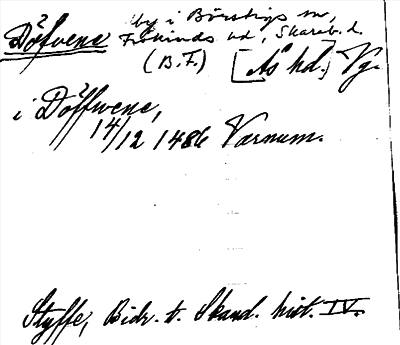 Döfvene by i Börstigs sn,
Frökinds hd, Skarab. l.
(B.F.) [Ås hd.] Vg.
i Döffwene,
14/12 1486 Varnum.
Styffe, Bidr. t. Skand. hist. IV.